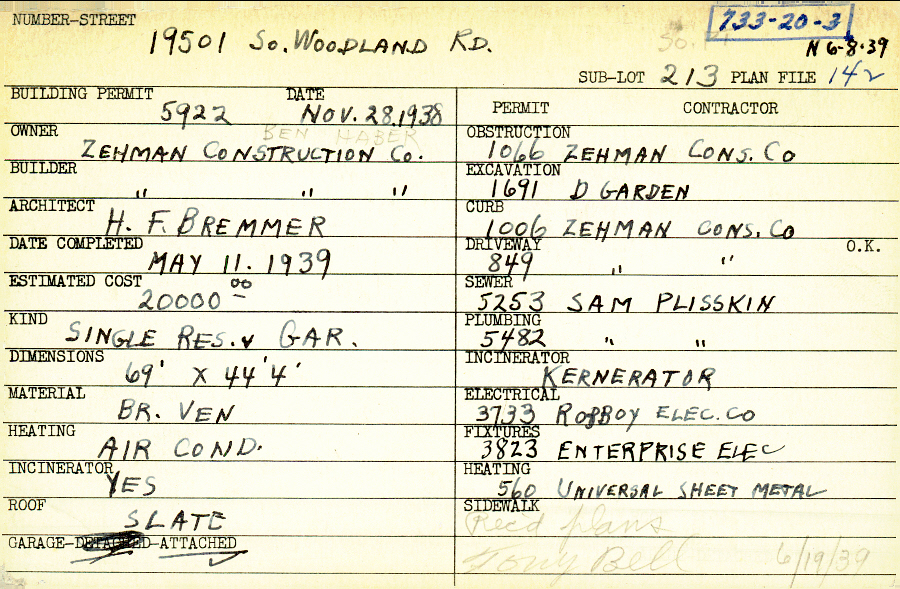 NUMBER-STREET
733-20-3
19501 So. WOODLAND RD.
N 6-8-39
SUB-LOT 213 PLAN FILE 142
BUILDING PERMIT DATE
5922 NOV. 28.1938
BEN HABER
OWNER
ZEHMAN CONSTRUCTION CO.
BUILDER
" " "
ARCHITECT
H. F. BREMMER
DATE COMPLETED
MAY 11. 1939
ESTIMATED COST
20000 00
KIND
SINGLE RES. v GAR.
DIMENSIONS
69' X 44'4'
MATERIAL
BR. VEN
HEATING
AIR COND.
INCINERATOR
YES
ROOF
SLATE
GARAGE-DETACHED-ATTACHED
PERMIT CONTRACTOR
OBSTRUCTION
1066 ZEHMAN CONS. CO
EXCAVATION
1691 D GARDEN
CURB
1006 ZEHMAN CONS. CO
DRIVEWAY O.K.
849 " "
SEWER
5253 SAM PLISSKIN
PLUMBING
5482 " "
INCINERATOR
KERNERATOR
ELECTRICAL
3733 ROBBOY ELEC. CO
FIXTURES
3823 ENTERPRISE ELEC
HEATING
560 UNIVERSAL SHEET METAL
SIDEWALK
Rec'd plans
Tony Bell 6/19/39